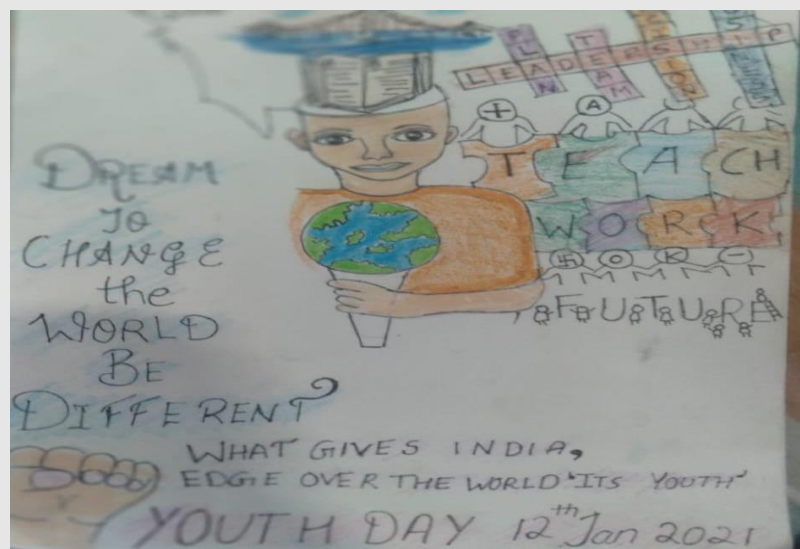 PLAN
TEAM
LEADERSHIP
A
TEACH
WORK
O K -
FUTURE
DREAM
TO
CHANGE
the
WORLD
BE
DIFFERENT
WHAT GIVES INDIA,
EDGE OVER THE WORLD 'ITS YOUTH'
YOUTH DAY 12th Jan 2021